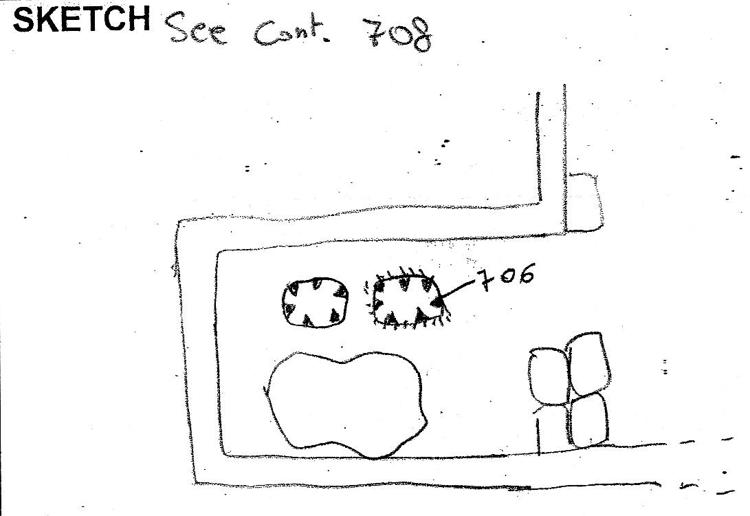 SKETCH See Cont. 708
706